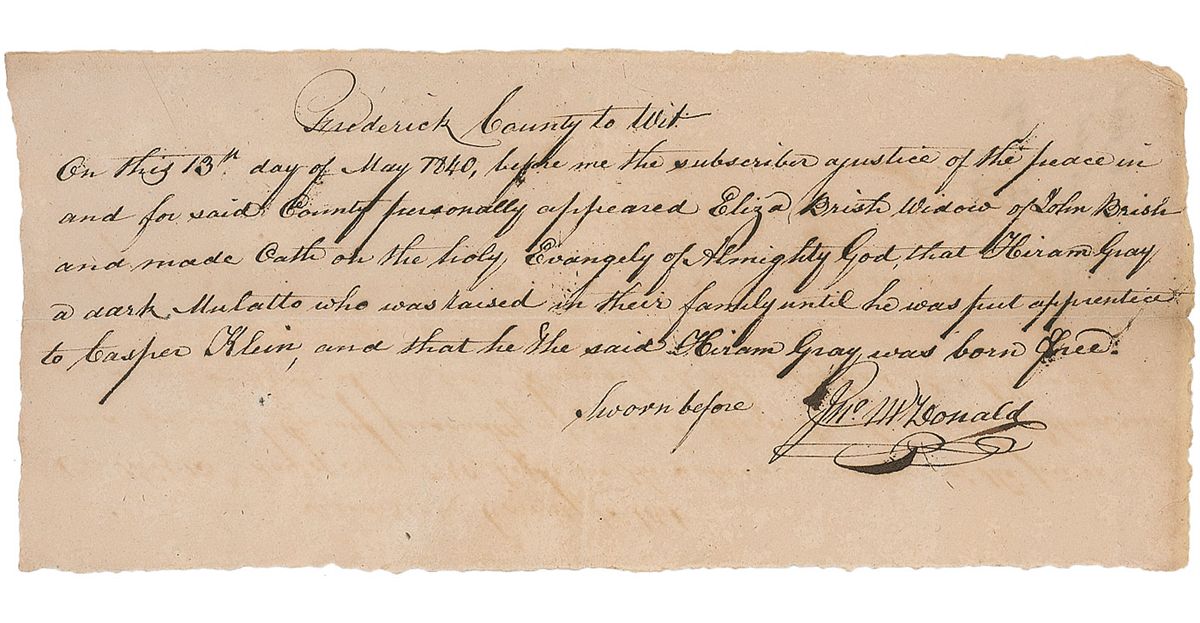 Frederick County to Wit.
On this 13th day of May 1840, before me the subscriber a justice of the peace in
and for said County personally appeared Eliza Brish Widow of John Brish
and made Oath on the holy Evangely of Almighty God, that Hiram Gray
a dark Mulatto who was raised in their family until he was put apprentice
to Casper Klein, and that he the said Hiram Gray was born free.
Sworn before Jno McDonald